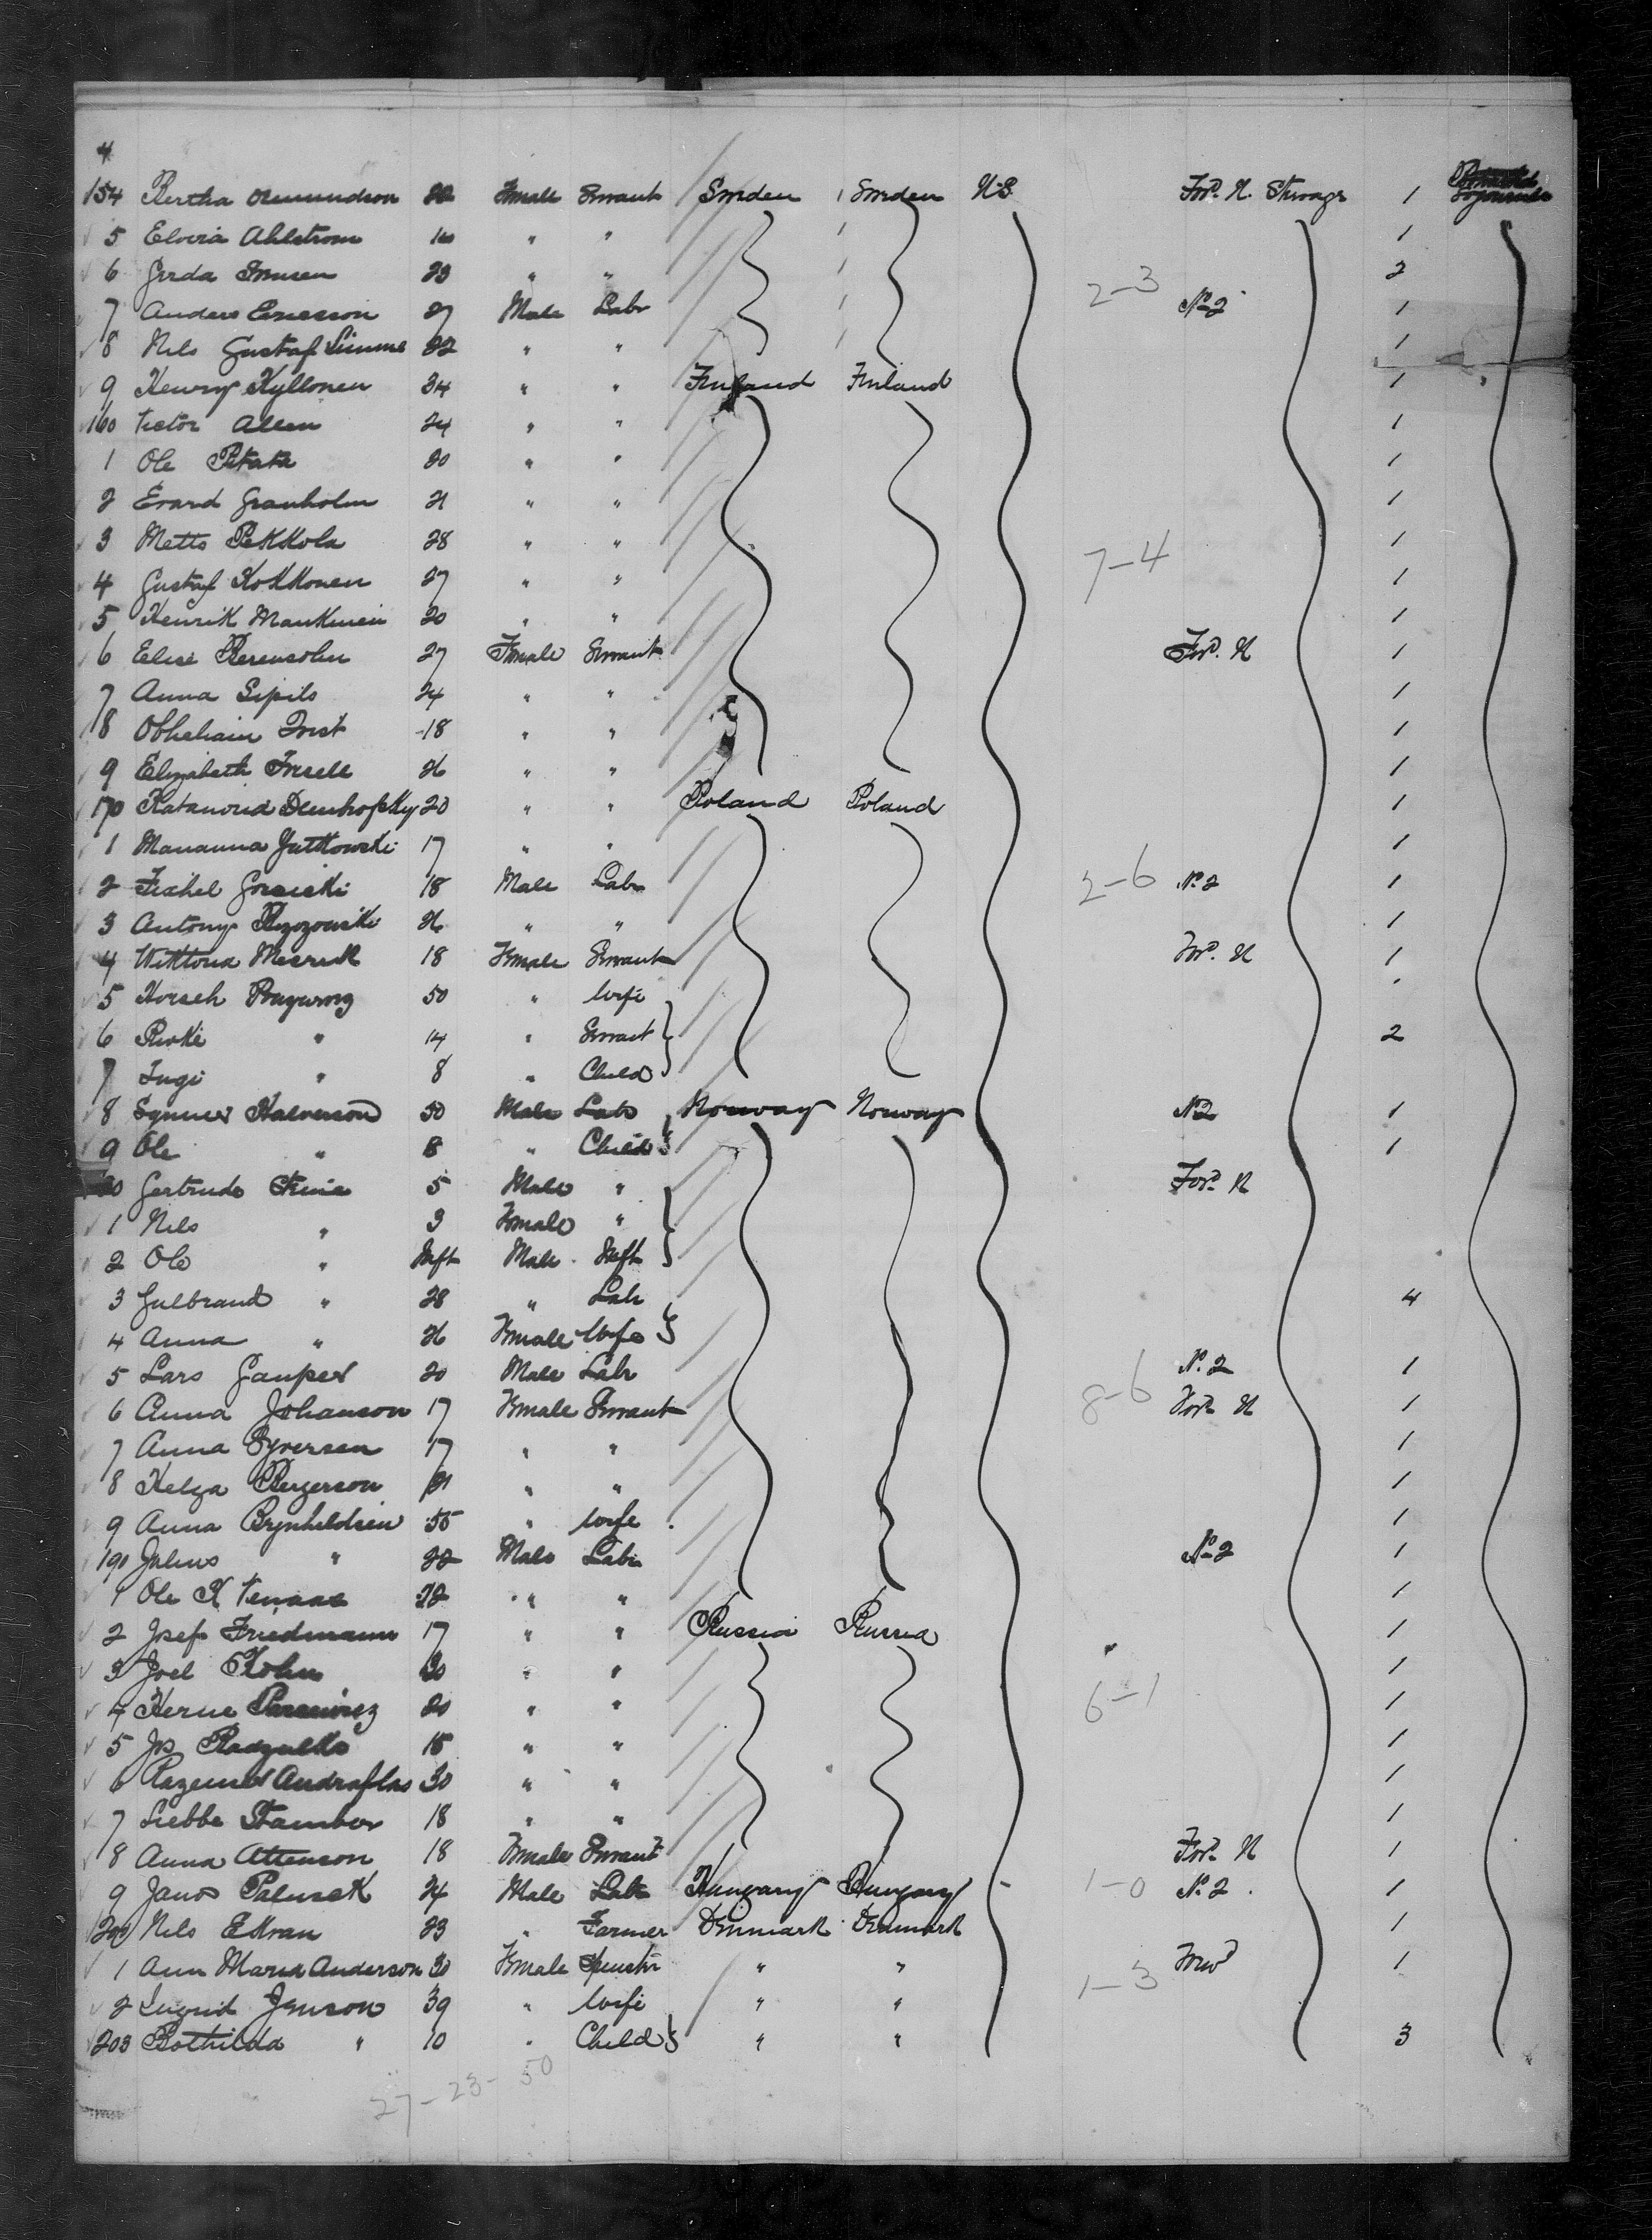 4
154 Bertha Osmundson 22 Female Servant Sweden Sweden U.S. For'd H. Steerage 1
5 Elovia Ahlstrom 16 " " 1
6 Gerda Jonusen 23 " " 2
2-3
7 Anders Ericsson 27 Male Labr No 2 1
8 Nils Gustaf Limme 22 " " 1
9 Henry Kyllonen 34 " " Finland Finland 1
160 Victor Allen 24 " " 1
1 Ole Pitata 20 " " 1
2 Evard Granholm 21 " " 1
3 Metts Pekkola 28 " " 1
7-4
4 Gustaf Kokkonen 27 " " 1
5 Henrik Mankinen 20 " " 1
6 Elise Berensohn 27 Female Servant For'd. H 1
7 Anna Sipils 24 " " 1
8 18 " " 1
9 Elizabeth 26 " " 1
170 20 " " Poland Poland 1
1 Marianna Jutkowski 17 " " 1
2 18 Male Labr 2-6 No 2 1
3 Antony 26 " " 1
4 Wiktoria 18 Female Servant For'd. H 1
5 50 " Wife
6 Rivke " 14 " Servant 2
7 " 8 " Child
8 Halverson 50 Male Labr Norway Norway No 2 1
9 Ole " 8 " Child 1
Gertrude 5 Male " For'd H
1 Nils " 3 Female "
2 Ole " Inft Male Inft
3 Gulbrand " 28 " Labr 4
4 Anna " 26 Female Wife
5 Lars Gauper 20 Male Labr No. 2 1
8-6
6 Anna Johanson 17 Female Servant For'd H 1
7 Anna Syversen 17 " " 1
8 Helga Bergerson 21 " " 1
9 Anna Brynhildsen 55 " Wife 1
190 Julius " 22 Male Labr No 2 1
1 Ole K 22 " " 1
2 Josef Friedmann 17 " " Russia Russia 1
3 Joel Kohn 30 " " 1
4 20 " " 6-1 1
5 Js 18 " " 1
6 30 " " 1
7 Liebbe Stambor 18 " " 1
8 Anna Attenson 18 Female Servant For'd H 1
9 Janos Palusek 24 Male Labr Hungary Hungary 1-0 No. 2 1
200 Nils 23 " Farmer Denmark Denmark 1
1 Ann Maria Anderson 30 Female Spinster " " Forw'd 1
1-3
2 Ingrid Jenson 39 " Wife " "
203 Bothilda " 10 " Child " " 3
27-23-50